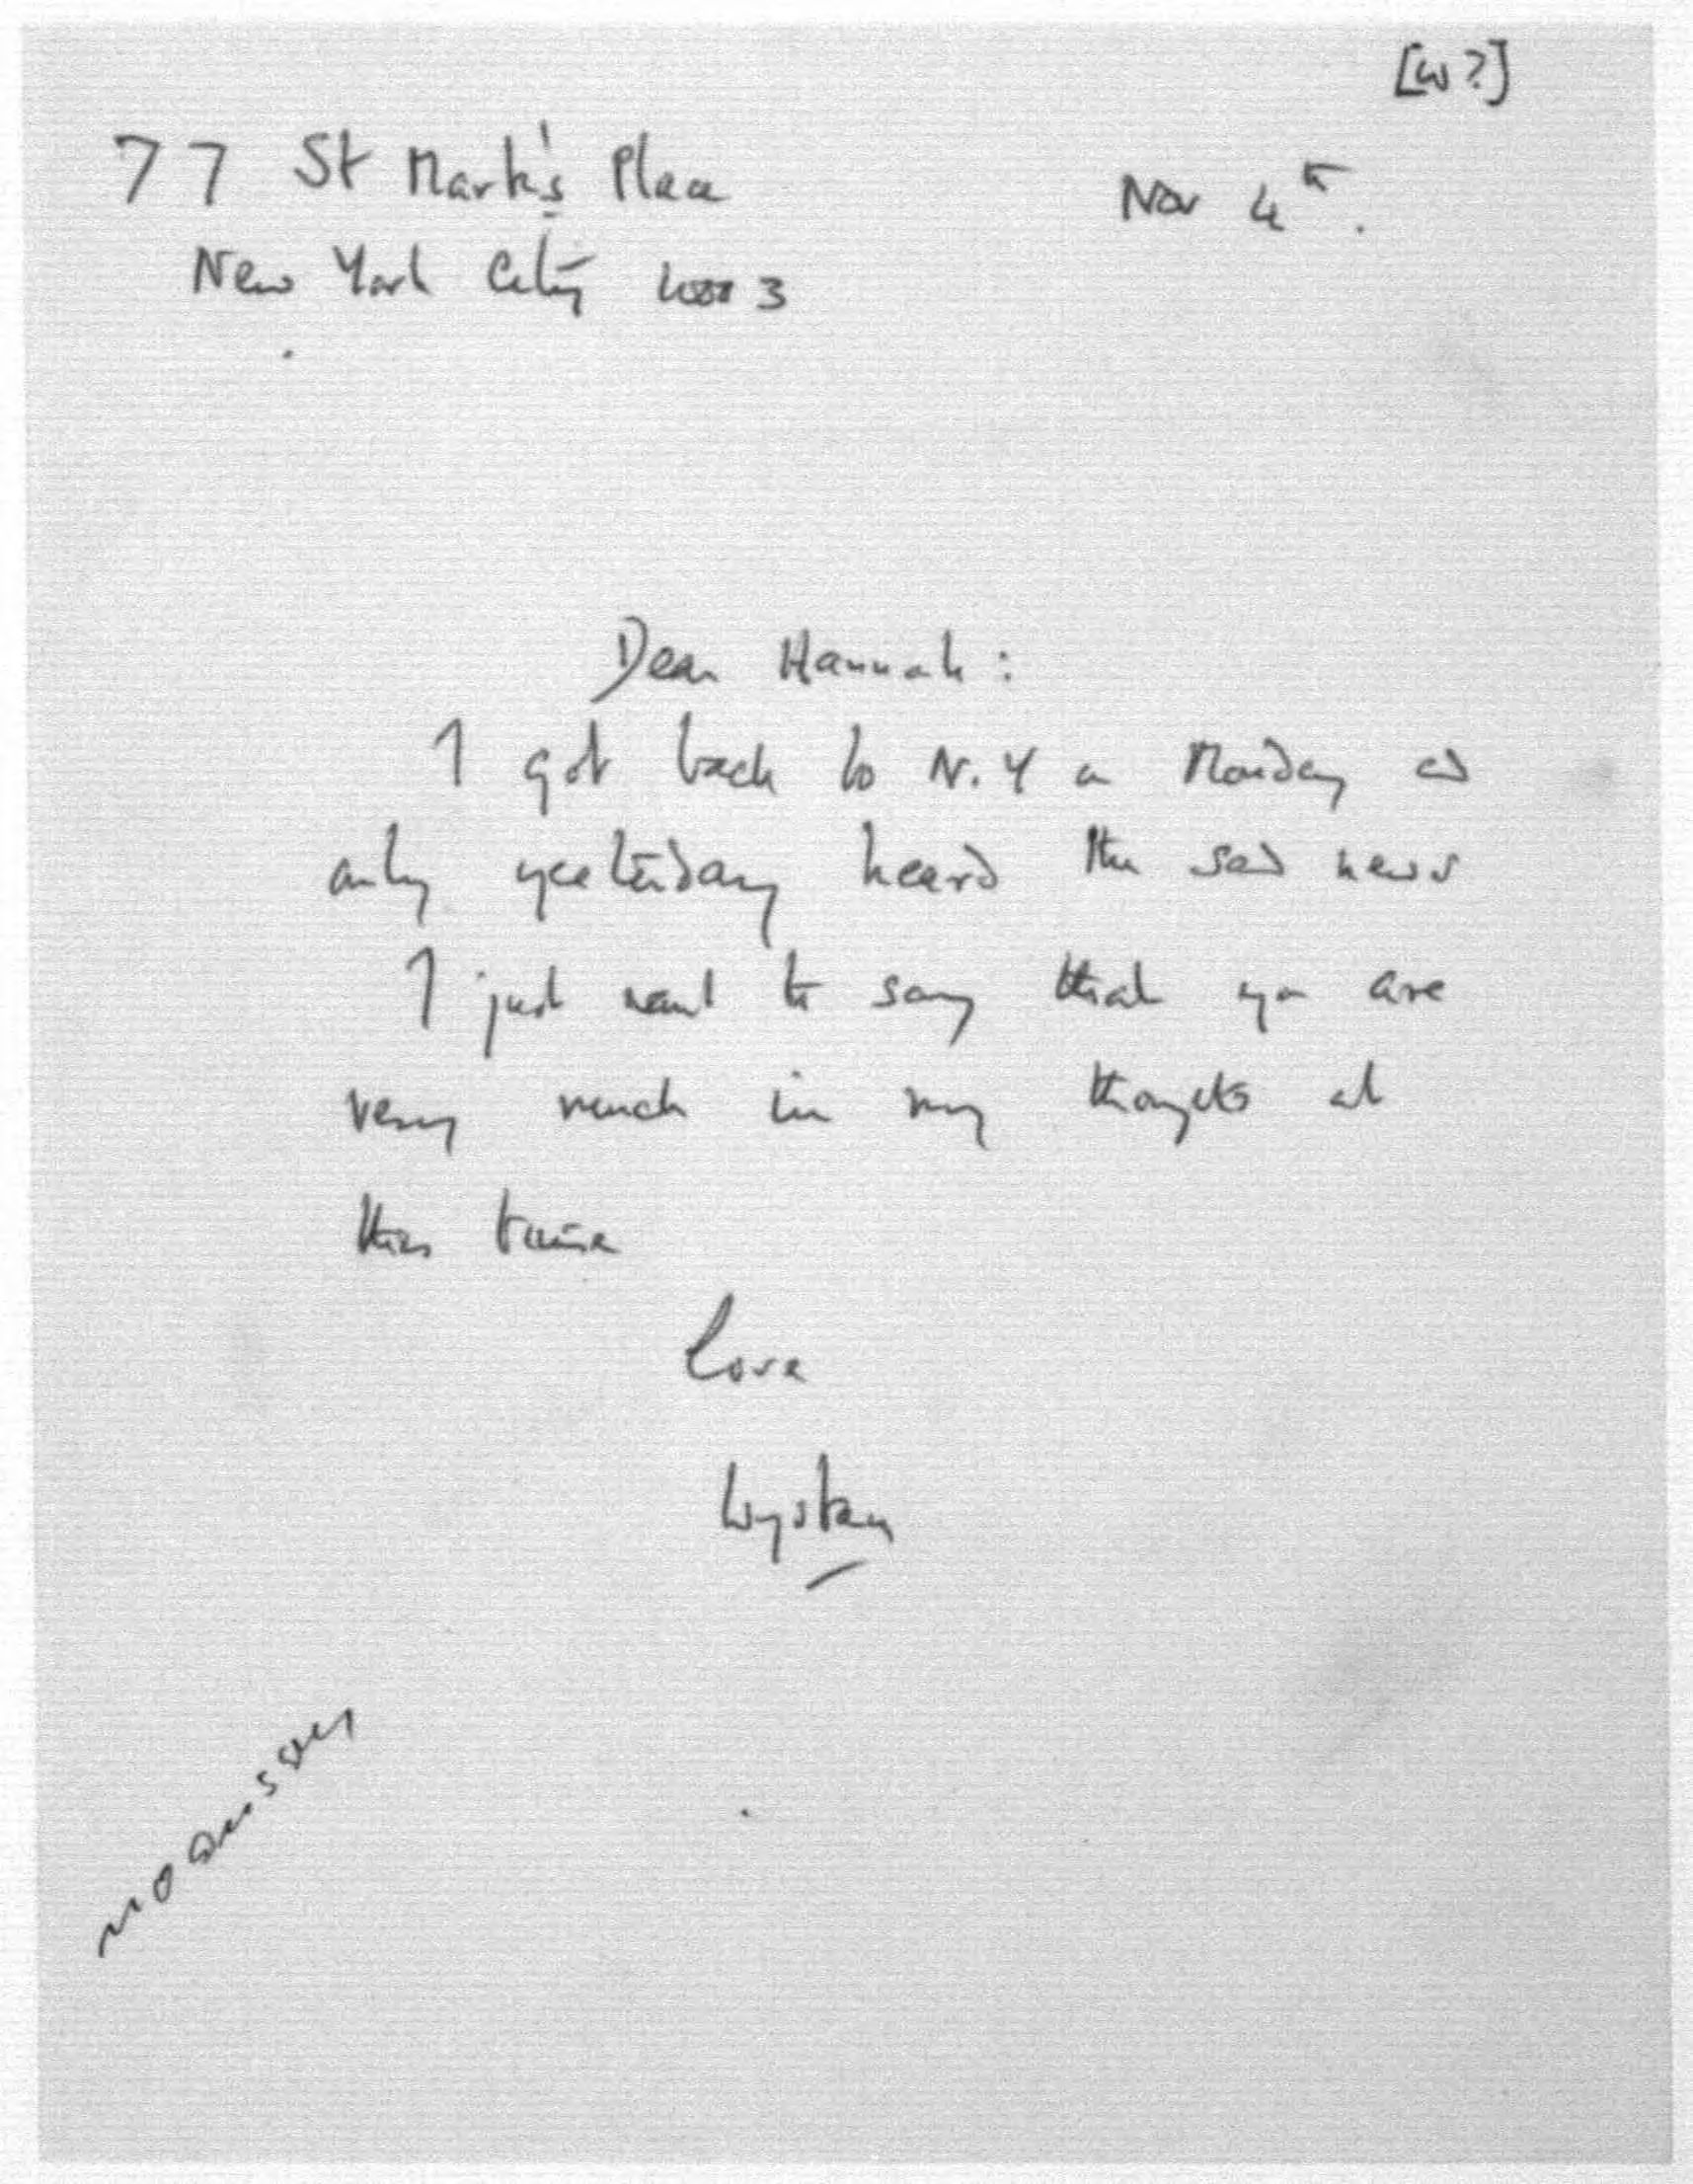 [W?]
77 St Mark's Place
Nov 4th.
New York City 10003
Dear Hannah:
I got back to N.Y on Monday and
only yesterday heard the sad news
I just want to say that you are
very much in my thoughts at
this time
Love
Wystan
no answer